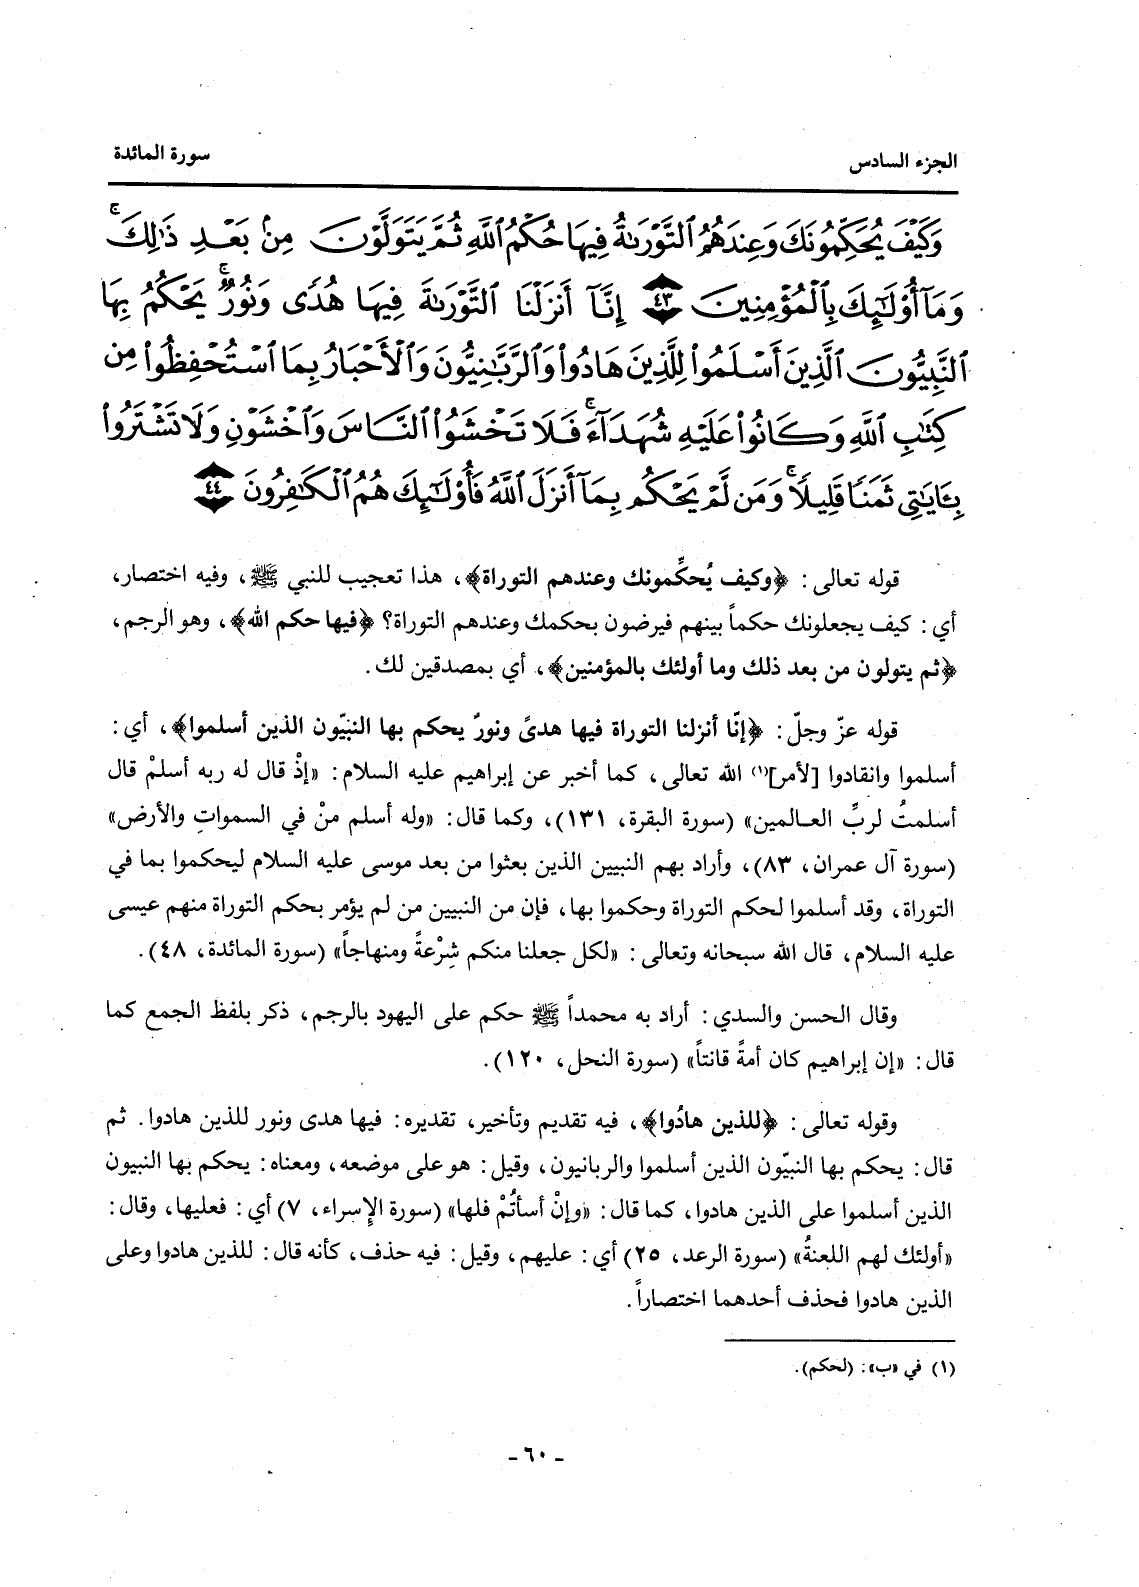 الجزء السادس
سورة المائدة
وَكَيْفَ يُحَكِّمُونَكَ وَعِندَهُمُ ٱلتَّوْرَىٰةُ فِيهَا حُكْمُ ٱللَّهِ ثُمَّ يَتَوَلَّوْنَ مِنۢ بَعْدِ ذَٰلِكَ ۚ
وَمَآ أُو۟لَٰٓئِكَ بِٱلْمُؤْمِنِينَ ٤٣ إِنَّآ أَنزَلْنَا ٱلتَّوْرَىٰةَ فِيهَا هُدًى وَنُورٌ ۚ يَحْكُمُ بِهَا
ٱلنَّبِيُّونَ ٱلَّذِينَ أَسْلَمُوا۟ لِلَّذِينَ هَادُوا۟ وَٱلرَّبَّٰنِيُّونَ وَٱلْأَحْبَارُ بِمَا ٱسْتُحْفِظُوا۟ مِن
كِتَٰبِ ٱللَّهِ وَكَانُوا۟ عَلَيْهِ شُهَدَآءَ ۚ فَلَا تَخْشَوُا۟ ٱلنَّاسَ وَٱخْشَوْنِ وَلَا تَشْتَرُوا۟
بِـَٔايَٰتِى ثَمَنًا قَلِيلًا ۚ وَمَن لَّمْ يَحْكُم بِمَآ أَنزَلَ ٱللَّهُ فَأُو۟لَٰٓئِكَ هُمُ ٱلْكَٰفِرُونَ ٤٤
قوله تعالى: ﴿وكيف يُحكِّمونك وعندهم التوراة﴾، هذا تعجيب للنبي ﷺ، وفيه اختصار،
أي: كيف يجعلونك حكماً بينهم فيرضون بحكمك وعندهم التوراة؟ ﴿فيها حكم الله﴾، وهو الرجم،
﴿ثم يتولون من بعد ذلك وما أولئك بالمؤمنين﴾، أي بمصدقين لك.
قوله عزّ وجلّ: ﴿إنّا أنزلنا التوراة فيها هدىً ونورٌ يحكم بها النبيّون الذين أسلموا﴾، أي:
أسلموا وانقادوا [لأمر](١) الله تعالى، كما أخبر عن إبراهيم عليه السلام: «إذْ قال له ربه أسلمْ قال
أسلمتُ لربِّ العـالمين» (سورة البقرة، ١٣١)، وكما قال: «وله أسلم منْ في السمواتِ والأرض»
(سورة آل عمران، ٨٣)، وأراد بهم النبيين الذين بعثوا من بعد موسى عليه السلام ليحكموا بما في
التوراة، وقد أسلموا لحكم التوراة وحكموا بها، فإن من النبيين من لم يؤمر بحكم التوراة منهم عيسى
عليه السلام، قال الله سبحانه وتعالى: «لكل جعلنا منكم شِرْعةً ومنهاجاً» (سورة المائدة، ٤٨).
وقال الحسن والسدي: أراد به محمداً ﷺ حكم على اليهود بالرجم، ذكر بلفظ الجمع كما
قال: «إن إبراهيم كان أمةً قانتاً» (سورة النحل، ١٢٠).
وقوله تعالى: ﴿للذين هادُوا﴾، فيه تقديم وتأخير، تقديره: فيها هدى ونور للذين هادوا. ثم
قال: يحكم بها النبيّون الذين أسلموا والربانيون، وقيل: هو على موضعه، ومعناه: يحكم بها النبيون
الذين أسلموا على الذين هادوا، كما قال: «وإنْ أسأتُمْ فلها» (سورة الإسراء، ٧) أي: فعليها، وقال:
«أولئك لهم اللعنةُ» (سورة الرعد، ٢٥) أي: عليهم، وقيل: فيه حذف، كأنه قال: للذين هادوا وعلى
الذين هادوا فحذف أحدهما اختصاراً.
(١) في «ب»: (لحكم).
- ٦٠ -